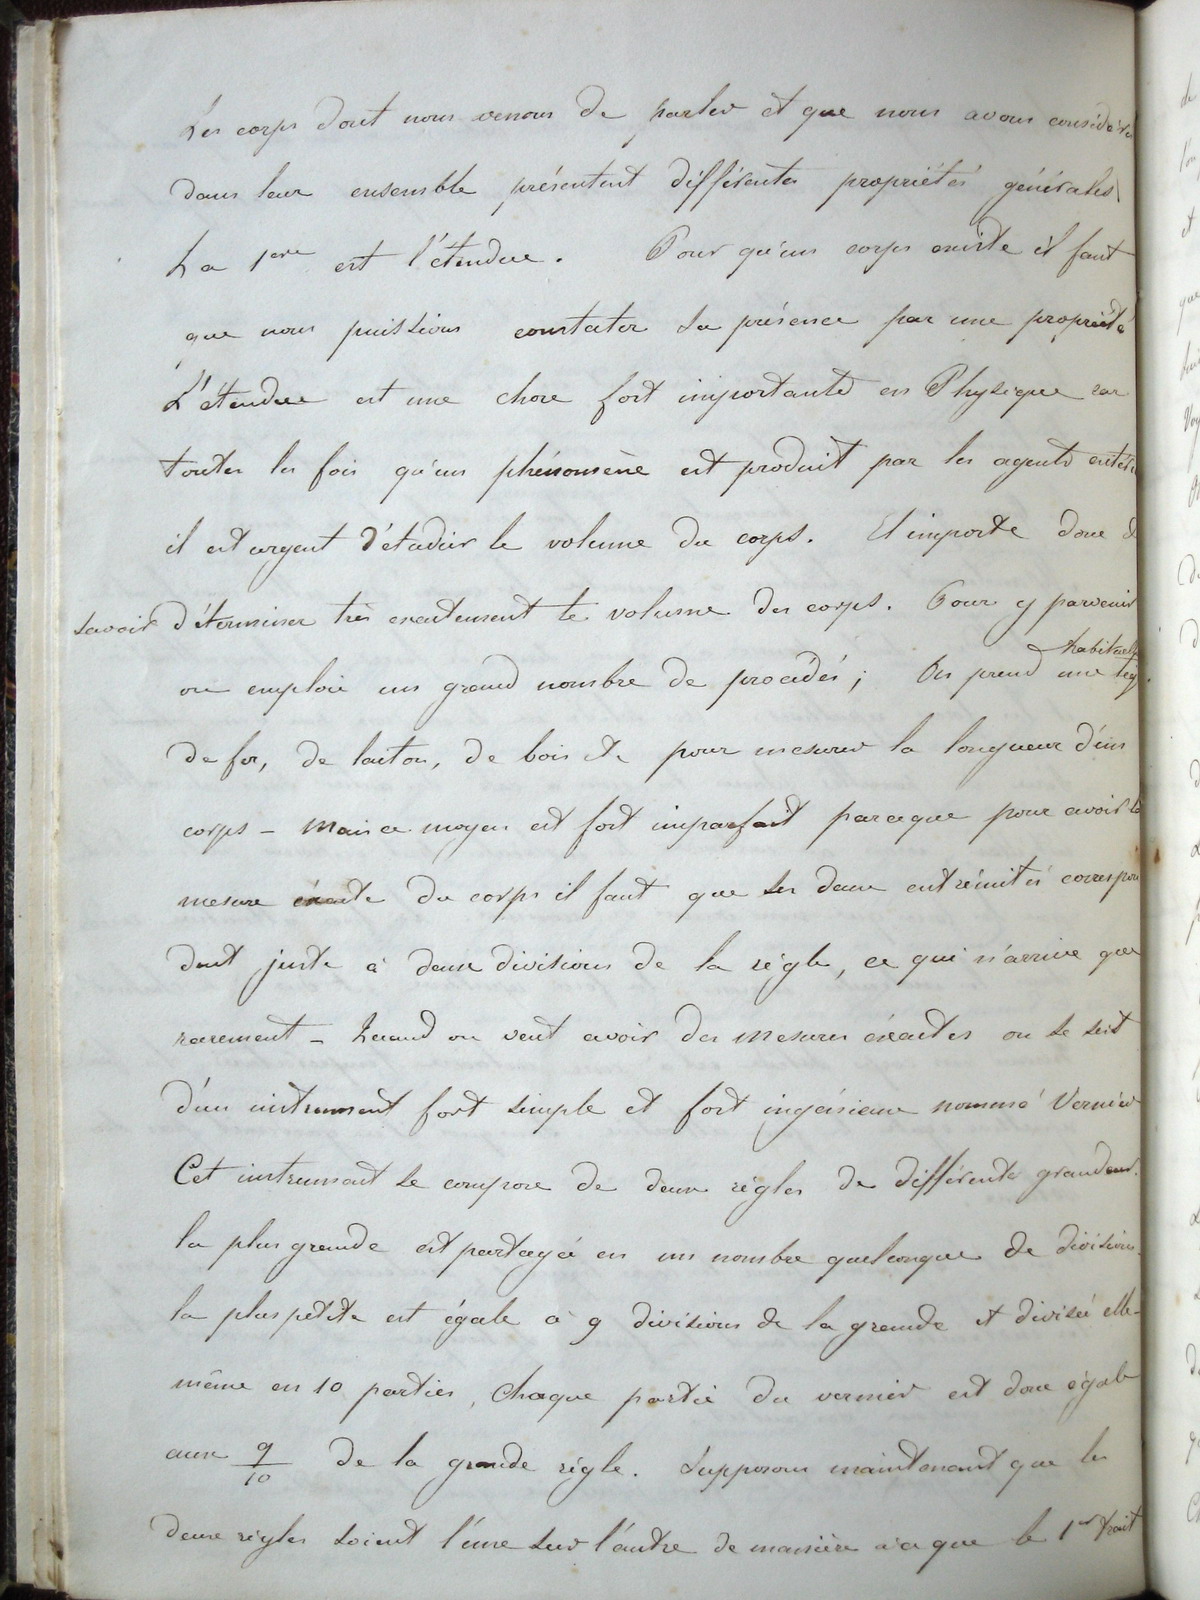 Les corps dont nous venons de parler et que nous avons considérés
dans leur ensemble présentent différentes propriétés générales
La 1ere est l'étendue. Pour qu'un corps existe il faut
que nous puissions constater sa présence par une propriété
L'étendue est une chose fort importante en Physique car
toutes les fois qu'un phénomène est produit par les agents
il est urgent d'étudier le volume du corps. Il importe donc de
savoir déterminer très exactement le volume des corps. Pour y parvenir
on emploie un grand nombre de procédés; On prend habituelt une règ
de fer, de laiton, de bois etc pour mesurer la longueur d'un
corps - Mais ce moyen est fort imparfait parceque pour avoir la
mesure éxacte du corps il faut que ses deux extrémités correspon
dent juste à deux divisions de la règle, ce qui n'arrive que
rarement - Quand on veut avoir des mesures éxactes on se sert
d'un instrument fort simple et fort ingénieux nommé Vernier
Cet instrument se compose de deux règles de différente grandeur.
la plus grande est partagée en un nombre quelconque de divisions.
la plus petite est égale à 9 divisions de la grande et divisée elle-
même en 10 parties, Chaque partie du vernier est donc égale
aux 9/10 de la grande règle. Supposons maintenant que les
deux règles soient l'une sur l'autre de manière à ce que le 1er trait